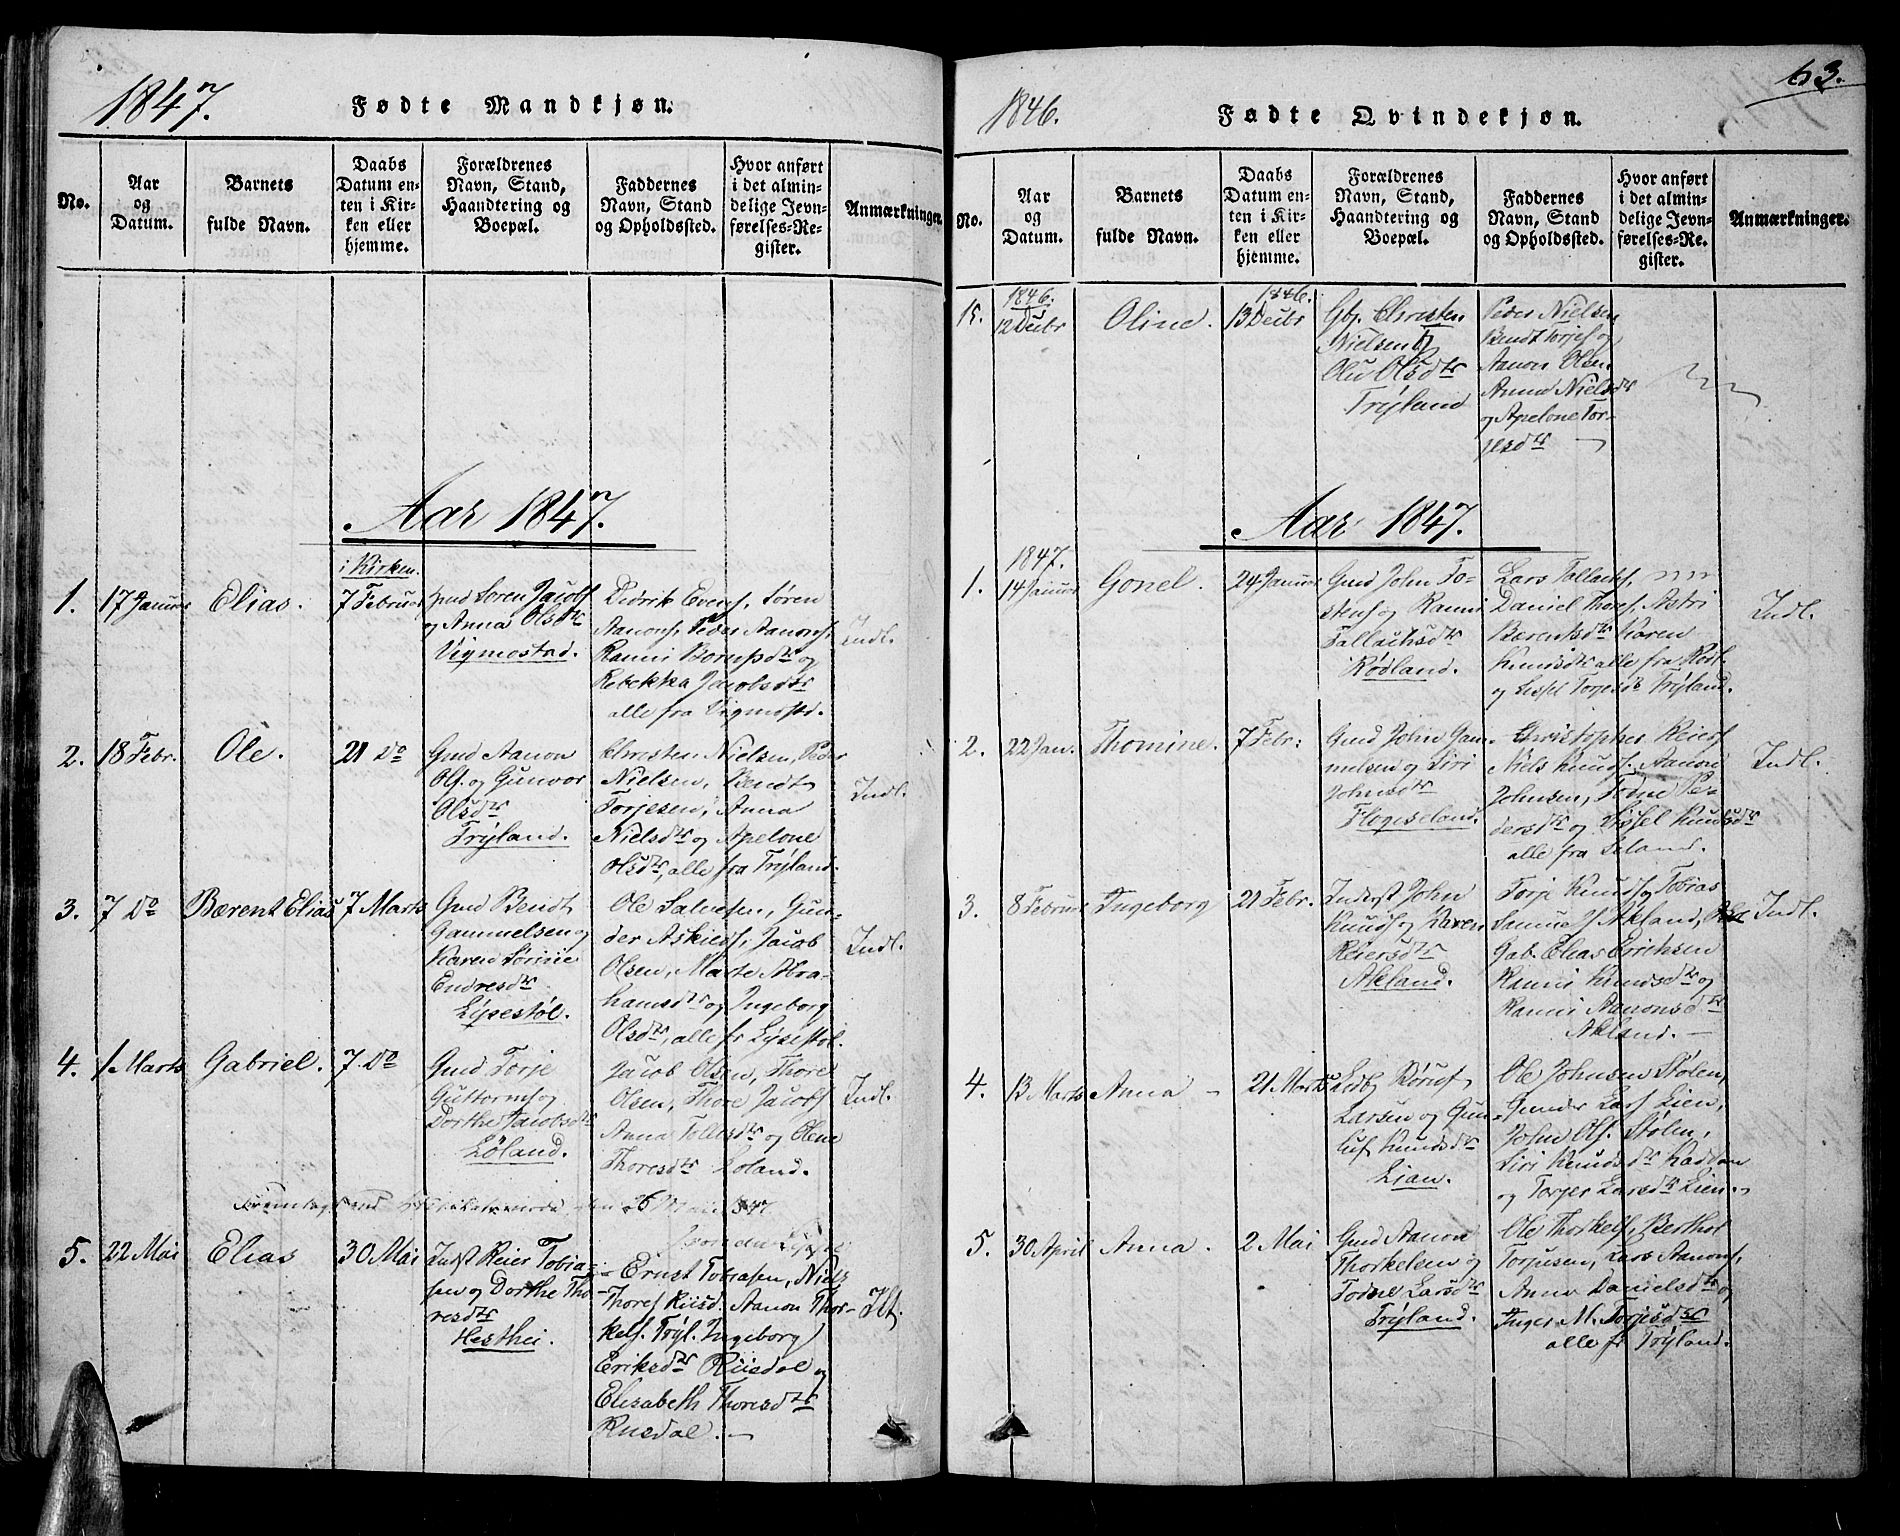 1847.
Fødte Mandkjøn.
No.
Aar
og
Datum.
Barnets
fulde Navn.
Daabs
Datum en-
ten i Kir-
ken eller
hjemme.
Forældrenes
Navn, Stand,
Haandtering og
Boepæl.
Faddernes
Navn, Stand
og Opholdssted.
Hvor anført
i det almin-
delige Jevn-
førelses-Re-
gister.
Anmærkninger.
Aar 1847.
i Kirken.
1.
17 Januar
Elias.
7 Februar
Søren Jacobs
og Anna Olsdtr
Vigmostad.
Didrik Evens, Søren
Aanons, Peder Aanons,
Ranni Bornpsdtr og
Rebekka Jacobsdtr
alle fra Vigmostd.
Indl.
2.
18 Febr.
Ole.
21 Do
Gmd Aanon
Ols. og Gunvor
Olsdtr
Trÿland.
Christen Nielsen, Peder
Nielsen, Bendt
Torjesen, Anna
Nielsdtr og Apelone
Olsdtr, alle fra Trÿland.
Indl.
3.
7 Do
Bærent Elias
7 Marts
Gmd Bendt
Gammelsen og
Karen Sørine
Endresdtr
Lÿsestøl.
Ole Salvesen, Gun-
der Askieds, Jacob
Olsen, Marte Abra-
hamsdtr og Ingeborg
Olsdtr, alle fr Lÿsestøl.
Indl.
4.
1 Marts
Gabriel.
7. Do
Gmd Torje
Guttorms og
Dorthe Jacobsdtr
Løland.
Jacob Olsen, Thore
Olsen, Thore Jacobs
Anna Tollisdtr og Olene
Thoresdtr Løland.
Indl.
den 26 Mai 1847.
5.
22 Mai
Elias
30 Mai
Indst Reier Tobia-
sen og Dorthe Tho-
resdtr
Hesthei.
Ernst Tobiasen, Niels
Thores Riisd. Aanon Thor-
kels. Trÿl. Ingeborg
Eriksdtr Riisdal og
Elisabeth Thoresdtr
Rusdal.
Ilt.
63.
1846.
Fødte Qvindekjøn.
No.
Aar
og
Datum.
Barnets
fulde Navn.
Daabs
Datum en-
ten i Kir-
ken eller
hjemme.
Forældrenes
Navn, Stand,
Haandtering og
Boepæl.
Faddernes
Navn, Stand
og Opholdssted.
Hvor anført
i det almin-
delige Jevn-
førelses-Re-
gister.
Anmærkninger.
15.
1846.
12 Decbr
Oline.
1846.
13 Decbr
Gbj. Christen
Nielsen og
Olu Olsdtr
Trÿland
Peder Nielsen
Bendt Torjes og
Aanon Olsen.
Anna Nielsdtr
og Apelone Tor-
jesdtr
Aar 1847.
1.
1847.
14 Januar
Gonel.
24 Januar
Gmd John To-
stens og Ranni
Tallachsdtr
Rødland.
Lars Tallachs,
Daniel Thores, Astri
Bærentsdtr Karen
Knudsdtr alle fra Rødl.
og Sissel Torjesdtr Trÿland.
Indl.
2.
22 Jan.
Thomine.
7 Febr:
Gmd John Gam-
melsen og Siri
Johnsdtr
Flogeseland.
Christopher Reiers
Niels Knuds. Aanon
Johnsen, Todne Pe-
dersdtr og Sissel Knudsdtr
alle fra Seland.
Indl.
3.
8 Februar
Ingeborg
21 Febr.
Inderst John
Knuds og Karen
Reiersdtr
Akeland.
Torje Knuds og Tobias
Samuels. Akeland,
Gab. Elias Eriksen
Ranni Knudsdtr og
Ranni Aanonsdtr
Akeland.
Indl.
4.
13 Marts
Anna
21 Marts
Lars
Larsen og Gun-
luf Knudsdtr
Lian.
Ole Johnsen Stølen,
Gunder Lars Lien,
John Ols. Stølen,
Siri Knudsdtr Kaddan
og Torjer Larsdtr Lien.
5.
30 April
Anna.
2 Mai
Gmd Aanon
Thorkelsen og
Todne Larsdtr
Trÿland.
Ole Thorkels, Berthel
Torjusen, Lars Aanons,
Anna Danielsdtr og
Inger M. Torjesdtr
alle fr Trÿland.